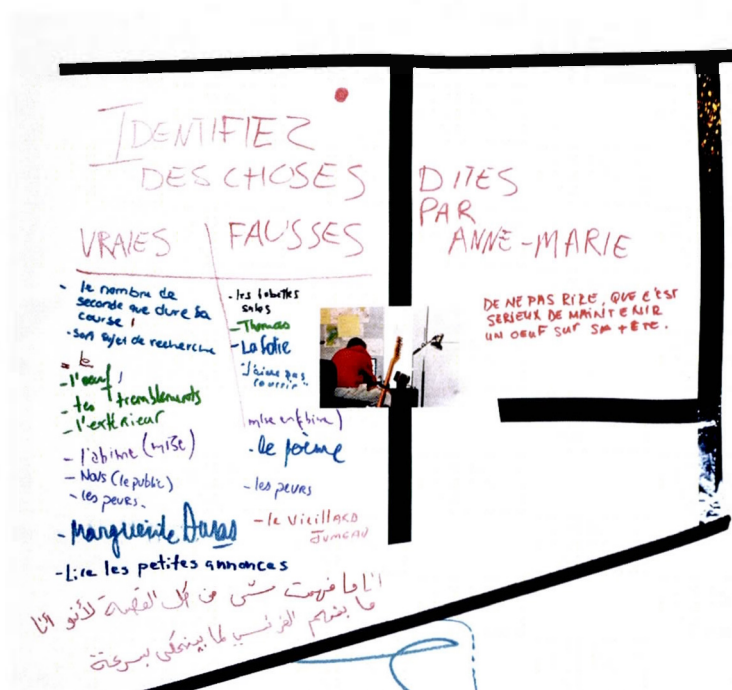 IDENTIFIEZ
DES CHOSES
VRAIES
- le nombre de
seconde que dure sa
course !
- son sujet de recherche
- le
- l'oeuf !
- les tremblements
- l'extérieur
- l'abîme (mise)
- Nous (le public)
- les peurs.
- Marguerite Duras
- Lire les petites annonces
FAUSSES
- les
sales
- Thomas
- La folie
- "J'aime pas
courrir"
mise en abime)
- le poème
- les peurs
- le vieillard
JUMEAU
DITES
PAR
ANNE-MARIE
DE NE PAS RIRE, QUE C'EST
SERIEUX DE MAINTENIR
UN OEUF SUR SA TÊTE.
انا ما فهمت شي من كل القصة لأنو أنا
ما بفهم الفرنسي لما بينحكى بسرعة